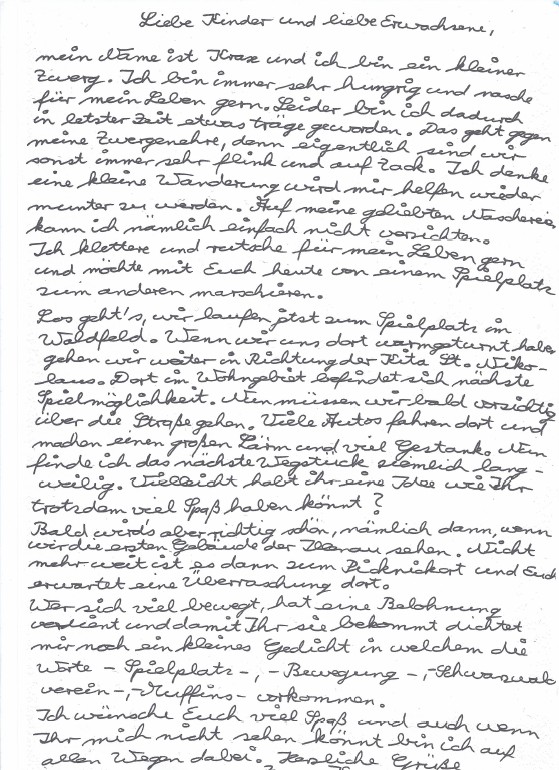 Liebe Kinder und liebe Erwachsene,
mein Name ist Krax und ich bin ein kleiner
Zwerg. Ich bin immer sehr hungrig und nasche
für mein Leben gern. Leider bin ich dadurch
in letzter Zeit etwas träge geworden. Das geht gegen
meine Zwergenehre, denn eigentlich sind wir
sonst immer sehr flink und auf Zack. Ich denke
eine kleine Wanderung wird mir helfen wieder
munter zu werden. Auf meine geliebten Naschereien
kann ich nämlich einfach nicht verzichten.
Ich klettere und rutsche für mein Leben gern
und möchte mit Euch heute von einem Spielplatz
zum anderen marschieren.
Los geht's, wir laufen jetzt zum Spielplatz im
Waldfeld. Wenn wir uns dort warmgeturnt haben
gehen wir weiter in Richtung der Kita St. Niko-
laus. Dort im Wohngebiet befindet sich nächste
Spielmöglichkeit. Nun müssen wir bald vorsichtig
über die Straße gehen. Viele Autos fahren dort und
machen einen großen Lärm und viel Gestank. Nun
finde ich das nächste Wegstück ziemlich lang-
weilig. Vielleicht habt ihr eine Idee wie Ihr
trotzdem viel Spaß haben könnt?
Bald wird's aber richtig schön, nämlich dann, wenn
wir die ersten Gebäude der Illenau sehen. Nicht
mehr weit ist es dann zum Picknickort und Euch
erwartet eine Überraschung dort.
Wer sich viel bewegt, hat eine Belohnung
verdient und damit Ihr sie bekommt dichtet
mir noch ein kleines Gedicht in welchem die
Worte - Spielplatz -, - Bewegung -, - Schwarzwald
verein -, - Muffins - vorkommen.
Ich wünsche Euch viel Spaß und auch wenn
Ihr mich nicht sehen könnt bin ich auf
allen Wegen dabei. Herzliche Grüße